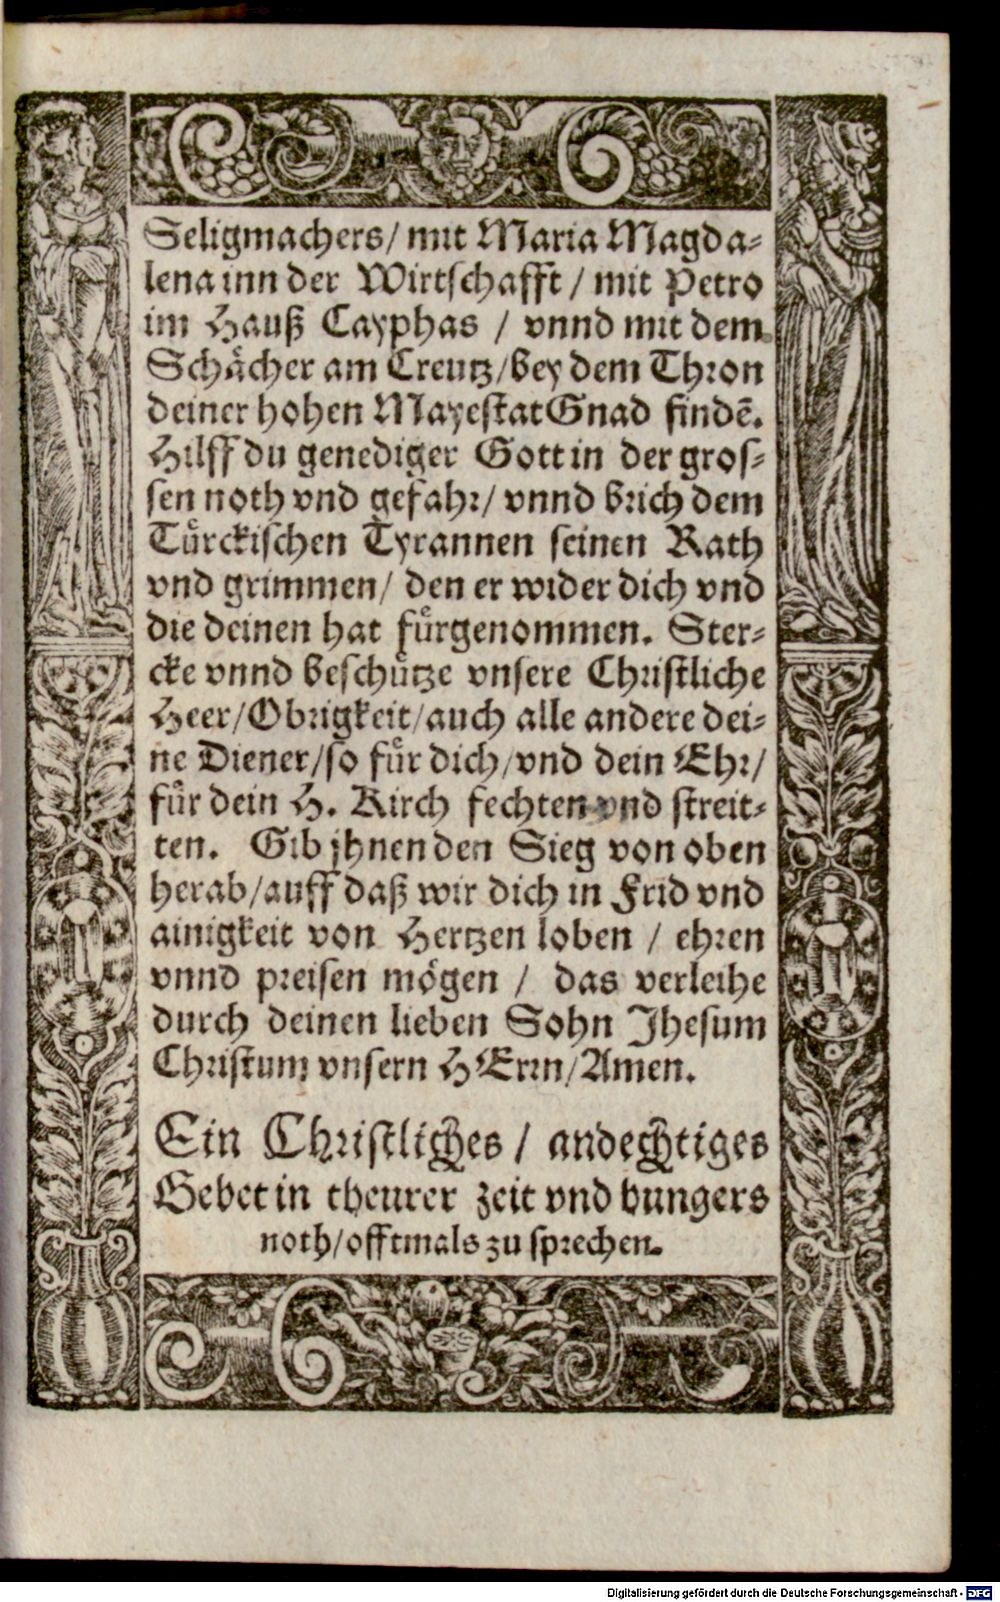 Seligmachers/ mit Maria Magda⸗
lena inn der Wirtschafft / mit Petro
im Hauß Cayphas / vnnd mit dem
Schaͤcher am Creutz/bey dem Thron
deiner hohen Mayestat Gnad findẽ.
Hilff du genediger Gott in der gros⸗
sen noth vnd gefahr/ vnnd brich dem
Tuͤrckischen Tyrannen seinen Rath
vnd grimmen/ den er wider dich vnd
die deinen hat fuͤrgenommen. Ster⸗
cke vnnd beschuͤtze vnsere Christliche
Heer/Obrigkeit/auch alle andere dei⸗
ne Diener/so fuͤr dich/vnd dein Ehr/
fuͤr dein H. Kirch fechten vnd streit⸗
ten. Gib jhnen den Sieg von oben
herab/auff daß wir dich in Frid vnd
ainigkeit von Hertzen loben / ehren
vnnd preisen moͤgen / das verleihe
durch deinen lieben Sohn Jhesum
Christum vnsern HErrn/Amen.
Ein Christliches / andechtiges
Gebet in theurer zeit vnd hungers
noth/offtmals zu sprechen.
Digitalisierung gefördert durch die Deutsche Forschungsgemeinschaft - DFG